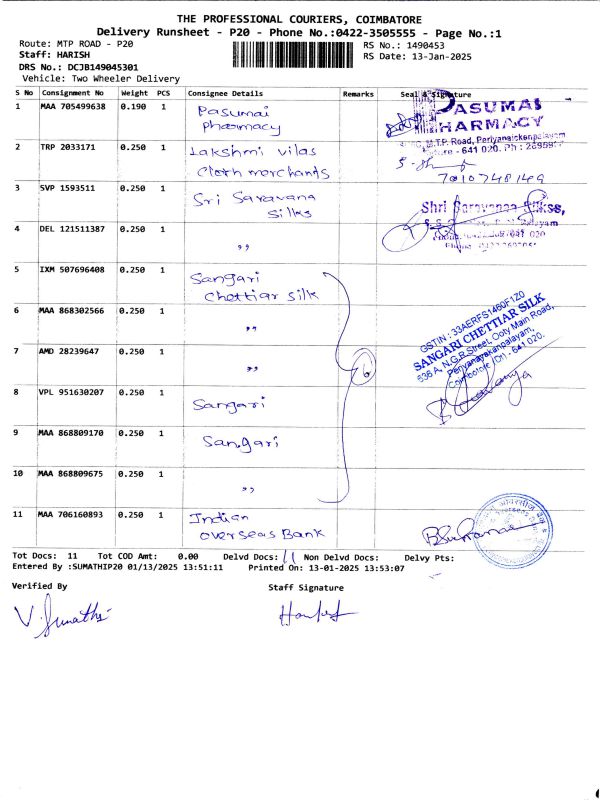 THE PROFESSIONAL COURIERS, COIMBATORE
Delivery Runsheet - P20 - Phone No.:0422-3505555 - Page No.:1
Route: MTP ROAD - P20
RS No.: 1490453
Staff: HARISH
RS Date: 13-Jan-2025
DRS No.: DCJB149045301
Vehicle: Two Wheeler Delivery
S No Consignment No Weight PCS Consignee Details Remarks Seal & Signature
1 MAA 705499638 0.190 1 Pasumai
pharmacy
PASUMAI
PHARMACY
M.T.P. Road, Periyanaickenpalayam
641 020. Ph :
2 TRP 2033171 0.250 1 Lakshmi vilas
Cloth merchants
7010748149
3 SVP 1593511 0.250 1 Sri Saravana
Silks
Shri Saravanaa Silkss,
4 DEL 121511387 0.250 1 ,,
5 IXM 507696408 0.250 1 Sangari
Chettiar Silk
6 MAA 868302566 0.250 1 ,,
GSTIN : 33AERFS1460F1Z0
SANGARI CHETTIAR SILK
536 A, N.G.R.Street, Ooty Main Road,
Periyanayakanpalayam,
Coimbatore (Dt) - 641 020.
7 AMD 28239647 0.250 1 ,,
6
8 VPL 951630207 0.250 1 Sangari
9 MAA 868809170 0.250 1 Sangari
10 MAA 868809675 0.250 1 ,,
11 MAA 706160893 0.250 1 Indian
overseas Bank
Tot Docs: 11 Tot COD Amt: 0.00 Delvd Docs: 11 Non Delvd Docs: Delvy Pts:
Entered By :SUMATHIP20 01/13/2025 13:51:11 Printed On: 13-01-2025 13:53:07
Verified By Staff Signature
V. Sumathi